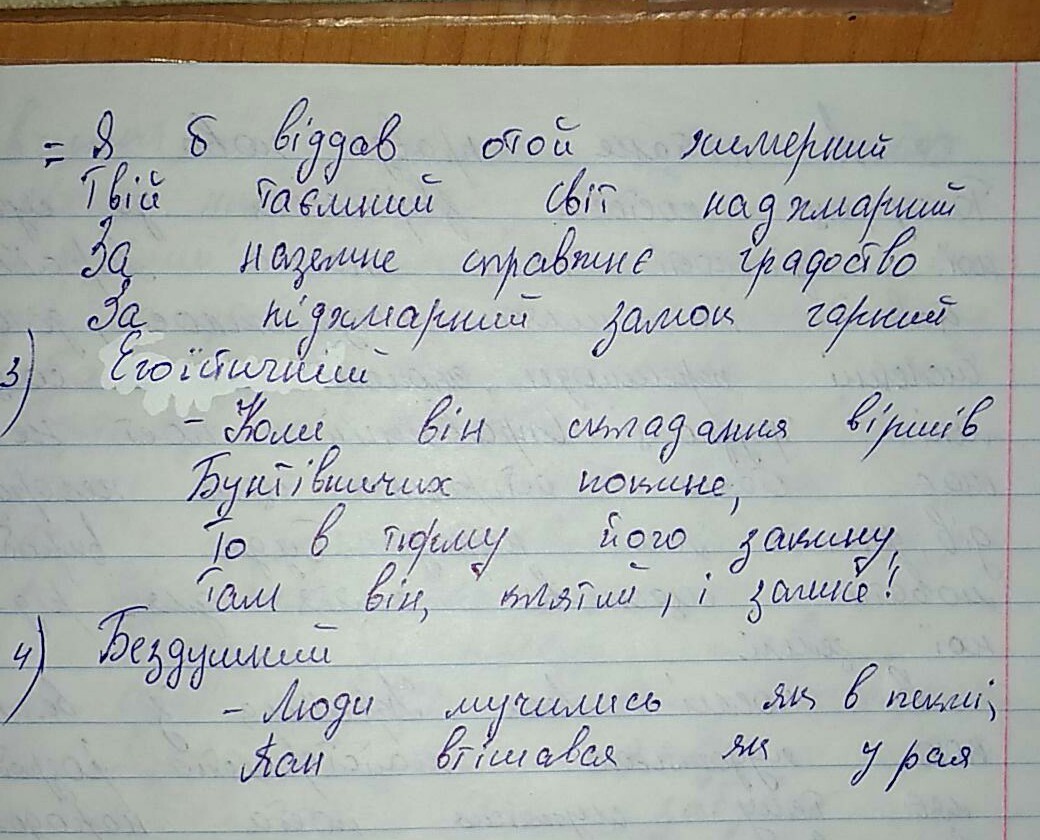 = Я б віддав отой химерний
Твій таємний світ надхмарний
За наземне справжнє градоство
За підхмарний замок гарний
3) Егоїстичний
- Коли він складання віршів
Бунтівничих покине,
То в тюрму його закину,
Там він, клятий, і загине!
4) Бездушний
- Люди мучились як в пеклі,
Пан втішався як у рая